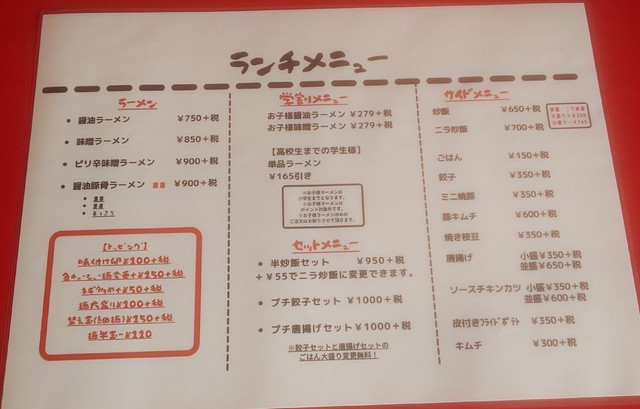 ランチメニュー
ラーメン
• 醤油ラーメン ￥750＋税
• 味噌ラーメン ￥850＋税
• ピリ辛味噌ラーメン ￥900＋税
• 醤油豚骨ラーメン ￥900＋税
• あっさり
【トッピング】
味付け卵￥100+税
￥250+税
￥50+税
麺大盛り￥100+税
￥150+税
学割りメニュー
お子様醤油ラーメン ￥279＋税
お子様味噌ラーメン ￥279＋税
【高校生までの学生様】
単品ラーメン
￥165引き
※お子様ラーメンは
小学生までとなります。
※お子様ラーメンは
ポイント対象外です。
※お子様ラーメンのみの
ご注文はお断りさせて頂きます。
セットメニュー
• 半炒飯セット ￥950＋税
＋￥55でニラ炒飯に変更できます。
• プチ餃子セット ￥1000＋税
• プチ唐揚げセット ￥1000＋税
※餃子セットと唐揚げセットの
ごはん大盛り変更無料！
サイドメニュー
炒飯 ￥650＋税
ニラ炒飯 ￥700＋税
ごはん ￥150＋税
餃子 ￥350＋税
ミニ焼豚 ￥350＋税
豚キムチ ￥600＋税
焼き枝豆 ￥350＋税
唐揚げ 小盛￥350＋税
並盛￥650＋税
ソースチキンカツ 小盛￥350＋税
並盛￥600＋税
皮付きﾌﾗｲﾄﾞﾎﾟﾃﾄ ￥350＋税
キムチ ￥300＋税